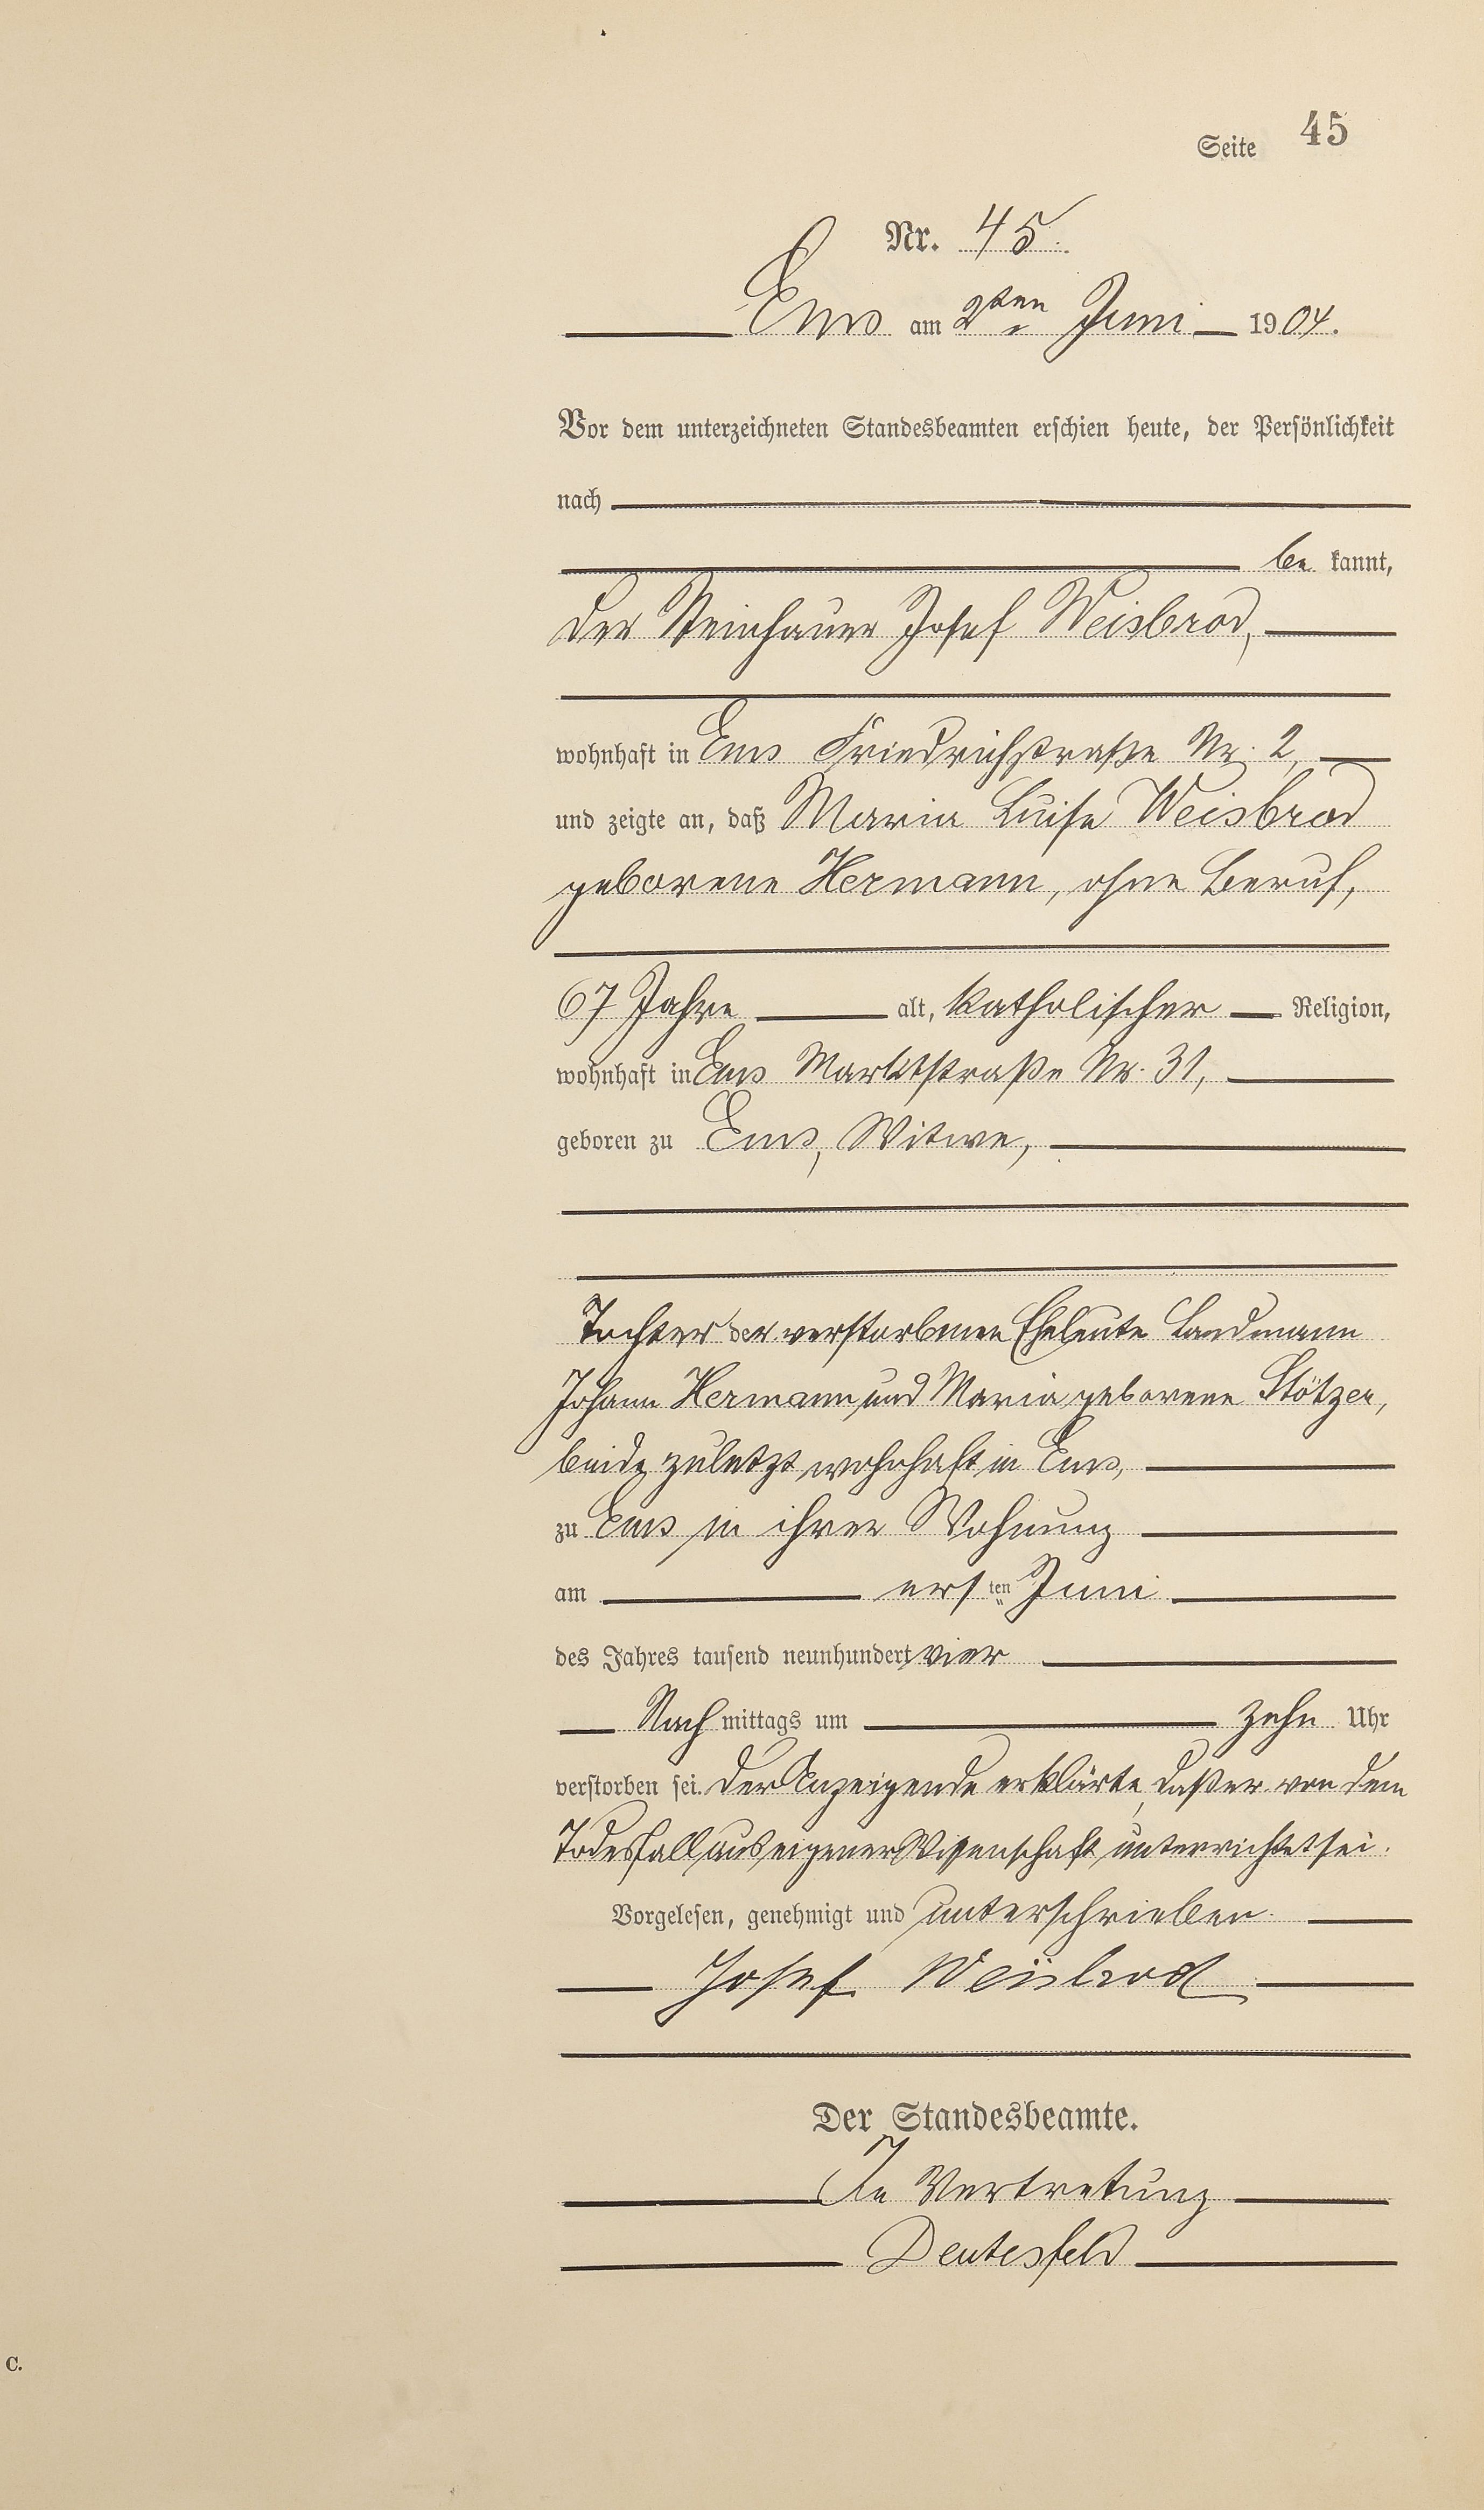 Seite 45
Nr. 45.
Ems am 2ten Juni 1904.
Vor dem unterzeichneten Standesbeamten erschien heute, der Persönlichkeit
nach
be kannt,
der Steinhauer Josef Weisbrod,
wohnhaft in Ems Friedrichstraße Nr. 2,
und zeigte an, daß Maria Luise Weisbrod
geborene Hermann, ohne Beruf,
67 Jahre alt, katholischer Religion,
wohnhaft in Ems Marktstraße Nr. 31,
geboren zu Ems, Witwe,
Tochter der verstorbenen Eheleute Landmann
Johann Hermann und Maria geborene Stötzer,
beide zuletzt wohnhaft in Ems,
zu Ems in ihrer Wohnung
am ersten Juni
des Jahres tausend neunhundert vier
Nach mittags um zehn Uhr
verstorben sei. Der Anzeigende erklärte, daß er von dem
Todesfall aus eigener Wissenschaft unterrichtet sei.
Vorgelesen, genehmigt und unterschrieben.
Josef Weisbrod
Der Standesbeamte.
In Vertretung
Deutesfeld
C.